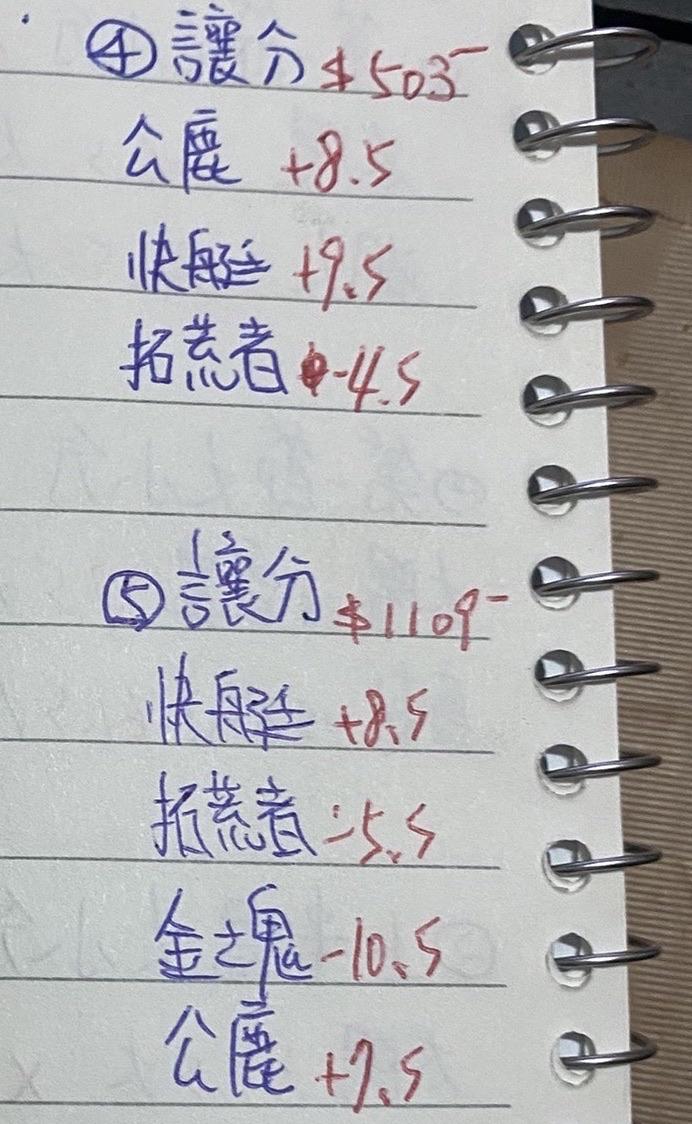 ④ 讓分 $503-
公鹿 +8.5
快艇 +9.5
拓荒者 -4.5
⑤ 讓分 $1109-
快艇 +8.5
拓荒者 -5.5
金塊 -10.5
公鹿 +7.5